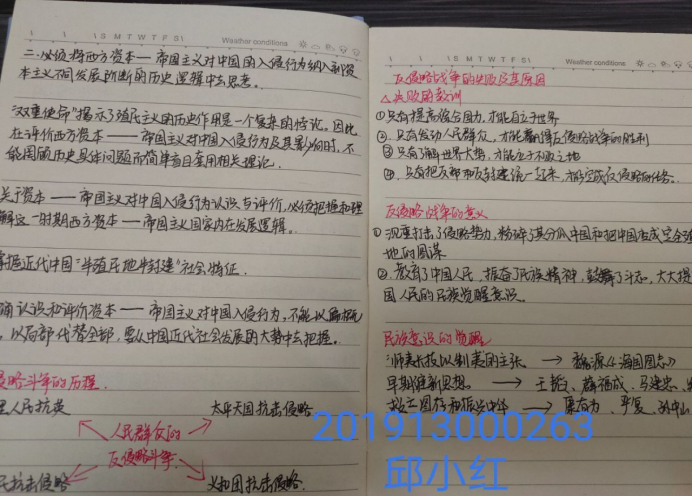 S M T W T F S
Weather conditions
二.必须将西方资本——帝国主义对中国的入侵行为纳入到资
本主义不同发展阶段的历史逻辑中去思考。
"双重使命"揭示了殖民主义的历史作用是一个复杂的悖论。因此
在评价西方资本——帝国主义对中国的入侵行为及其影响时,不
能罔顾历史具体问题而简单盲目套用相关理论。
关于资本——帝国主义对中国入侵行为认识与评价,必须把握和理
解这一时期西方资本——帝国主义国家内在发展逻辑。
掌握近代中国"半殖民地半封建"社会特征.
确认识和评价资本——帝国主义对中国入侵行为,不能以偏概
,以局部代替全部,要从中国近代社会发展的大势中去把握。
侵略斗争的历程.
里人民抗英
太平天国抗击侵略
人民群众的
反侵略斗争
民抗击侵略
义和团抗击侵略.
S M T W T F S
Weather conditions
反侵略战争的失败及其原因
△失败的教训
①只有提高综合国力,才能自立于世界
②.只有发动人民群众,才能赢得反侵略战争的胜利
③只有了解世界大势,才能立于不败之地
④.只有把反帝和反封建统一起来,才能完成反侵略的任务.
反侵略战争的意义
①沉重打击了侵略势力,粉碎了其瓜分中国和把中国变成完全殖
地的图谋
②.教育了中国人民,振奋了民族精神,鼓舞了斗志,大大提
国人民的民族觉醒意识.
民族意识的觉醒
"师夷长技以制夷的主张 → 魏源《海国图志》
早期维新思想. → 王韬、薛福成、马建忠、
救亡图存和振兴中华 → 康有为、严复、孙中山
201913000263
邱小红